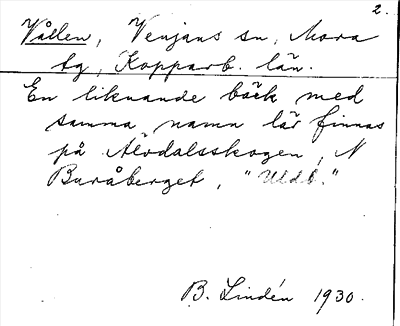 2.
Vållen, Venjans sn, Mora
tg, Kopparb. län.
En liknande bäck med
samma namn lär finnas
på Älvdalsskogen, N
Buråberget, "Uldb."
B. Lindén 1930.